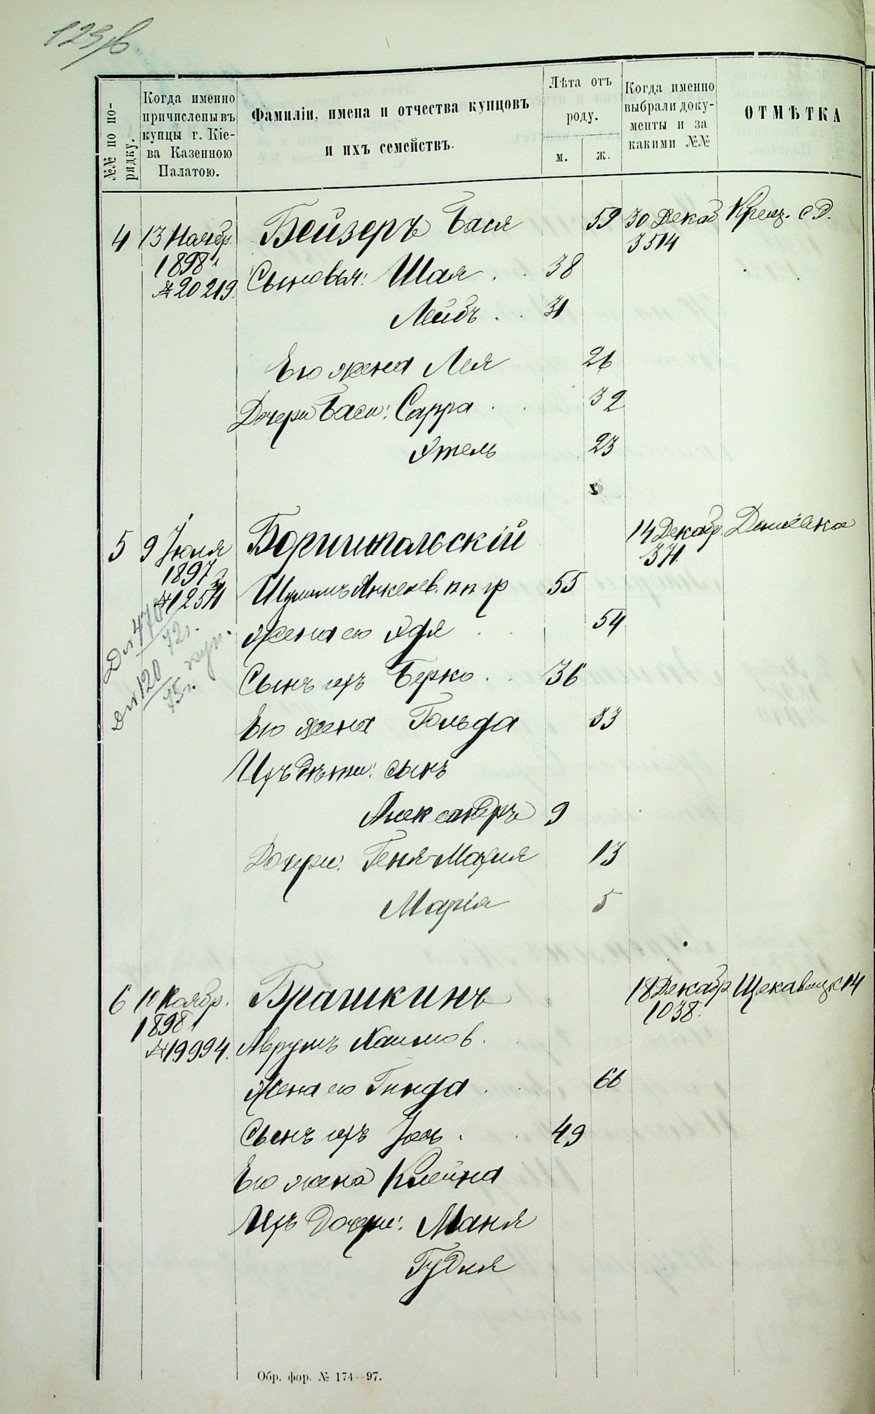 №№ по по-
рядку.
Когда именно
причислены въ
купцы г. Кіе-
ва Казенною
Палатою.
Фамиліи, имена и отчества купцовъ
и ихъ семействъ.
Лѣта отъ
роду.
м.
ж.
Когда именно
выбрали доку-
менты и за
какими №№
ОТМѢТКА
4 13 Ноябр. Бейзеръ Бася 59 30 Декаб
1898 3514
№ 20219. Сыновья: Шая 38
Лейбъ 31
Его жена Лея 26
Дочери Баси: Сарра 32
Этель 23
5 9 Іюля 14 Декабр
1897 371
№ 12571 Шулимъ Янкелев. 55
Жена его Эдя 54
Сынъ ихъ Берко 36
Его жена Гольда 33
Ихъ дѣти: сынъ
Александръ 9
Дочери: Геня-Марія 13
Марія 5
6 10 Ноябр. Брашкинъ 18 Декабр Щекавицк 14
1898 1038.
№ 19994. Аврумъ Хаимов.
Жена его Гинда 66
Сынъ ихъ Іось 49
Его жена Клейна
Ихъ Дочери: Маня
Гудля
Обр. фор. № 174—97.